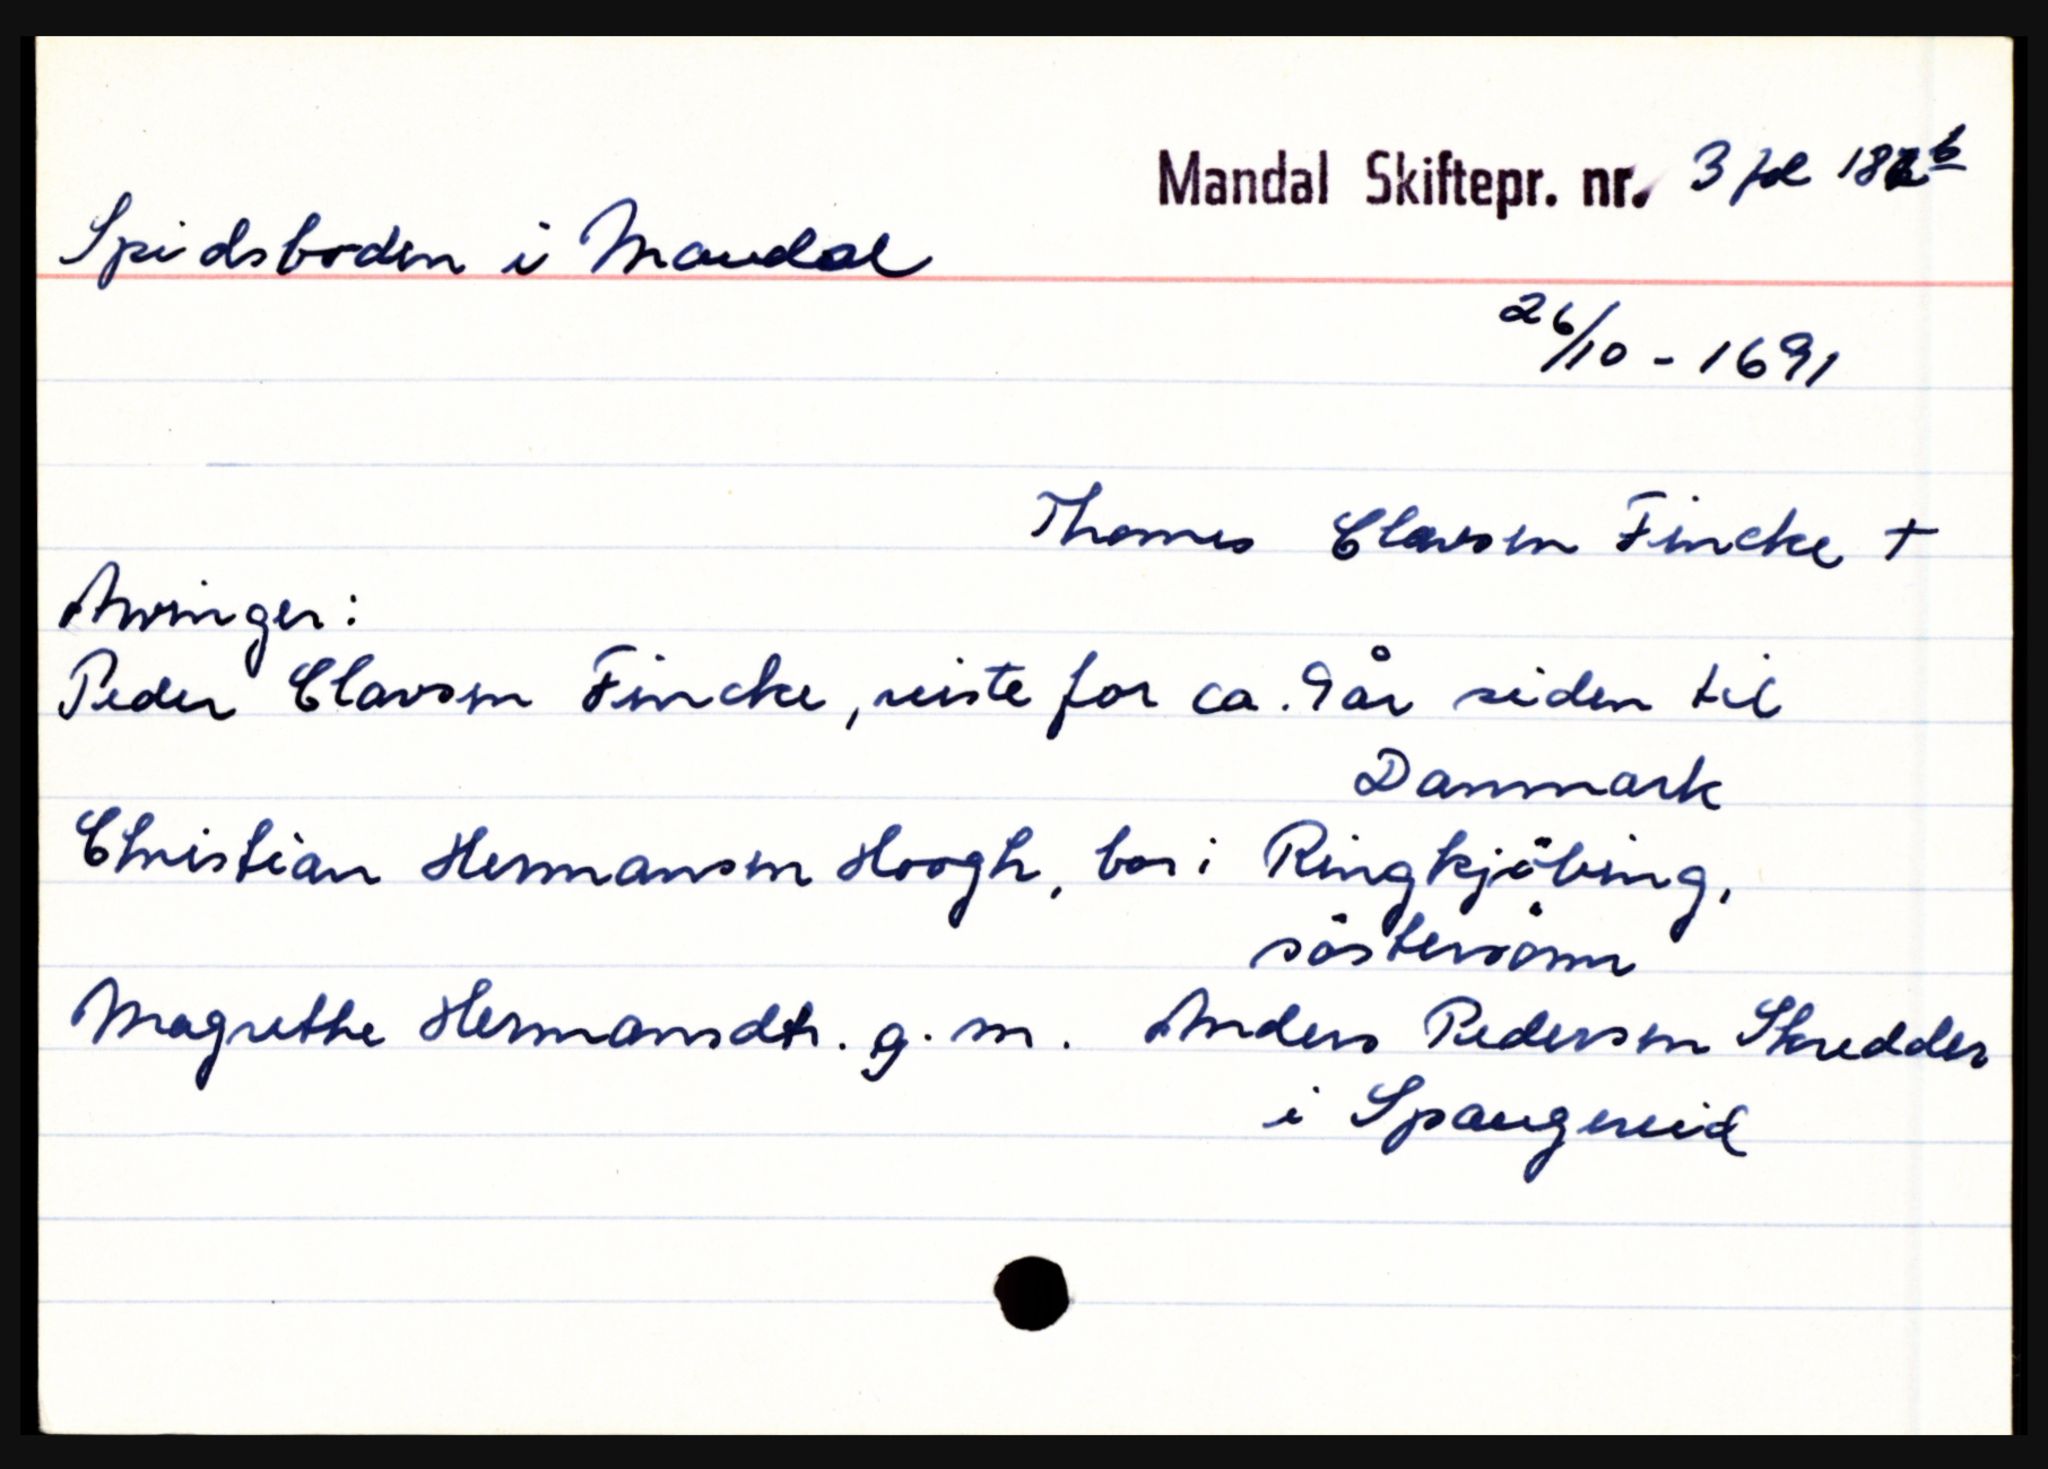 Mandal Skiftepr. nr. 3 fol 182 b
Spidsboden i Mandal
26/10 - 1691
Thomes Clavsen Fincke +
Arvinger:
Peder Clavsen Fincke, reiste for ca. 9 år siden til
Danmark
Christian Hermansen Hoogh, bor i Ringkjöbing,
söstersönn
Magrethe Hermansdtr. g. m. Anders Pedersen Skredder
i Spangereid